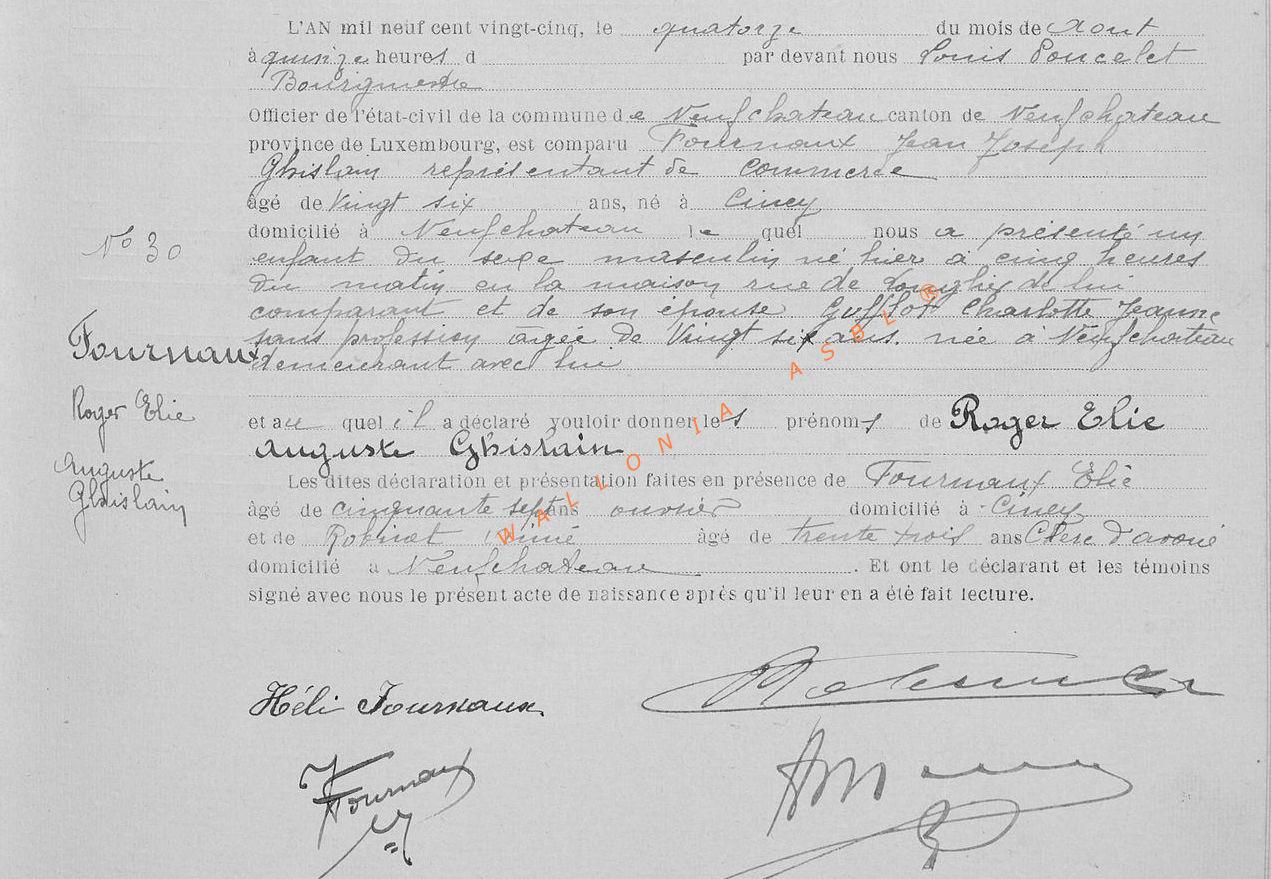 L'AN mil neuf cent vingt-cinq, le quatorze du mois de Aout
à quinze heures d par devant nous Louis Poncelet
Bourgmestre
Officier de l'état-civil de la commune de Neufchateau canton de Neufchateau
province de Luxembourg, est comparu Fournaux Jean Joseph
Ghislain représentant de commerce
âgé de Vingt six ans, né à Ciney
domicilié à Neufchateau le quel nous a présenté un
N° 30
enfant du sexe masculin né hier à cinq heures
du matin en la maison rue de de lui
comparant et de son épouse Gufflot Charlotte Jeanne
sans profession agée de Vingt six ans. née à Neufchateau
Fournaux
demeurant avec lui
Roger Elie
Auguste
Ghislain
et au quel il a déclaré vouloir donner les prénoms de Roger Elie
Auguste Ghislain
Les dites déclaration et présentation faites en présence de Fournaux Elie
âgé de cinquante sept ans ouvrier domicilié à Ciney
et de Robinet âgé de trente trois ans Clerc d'avoué
domicilié a Neufchateau. Et ont le déclarant et les témoins
signé avec nous le présent acte de naissance après qu'il leur en a été fait lecture.
WALLONIA ASBL ®
Héli Fournaux
Fournaux